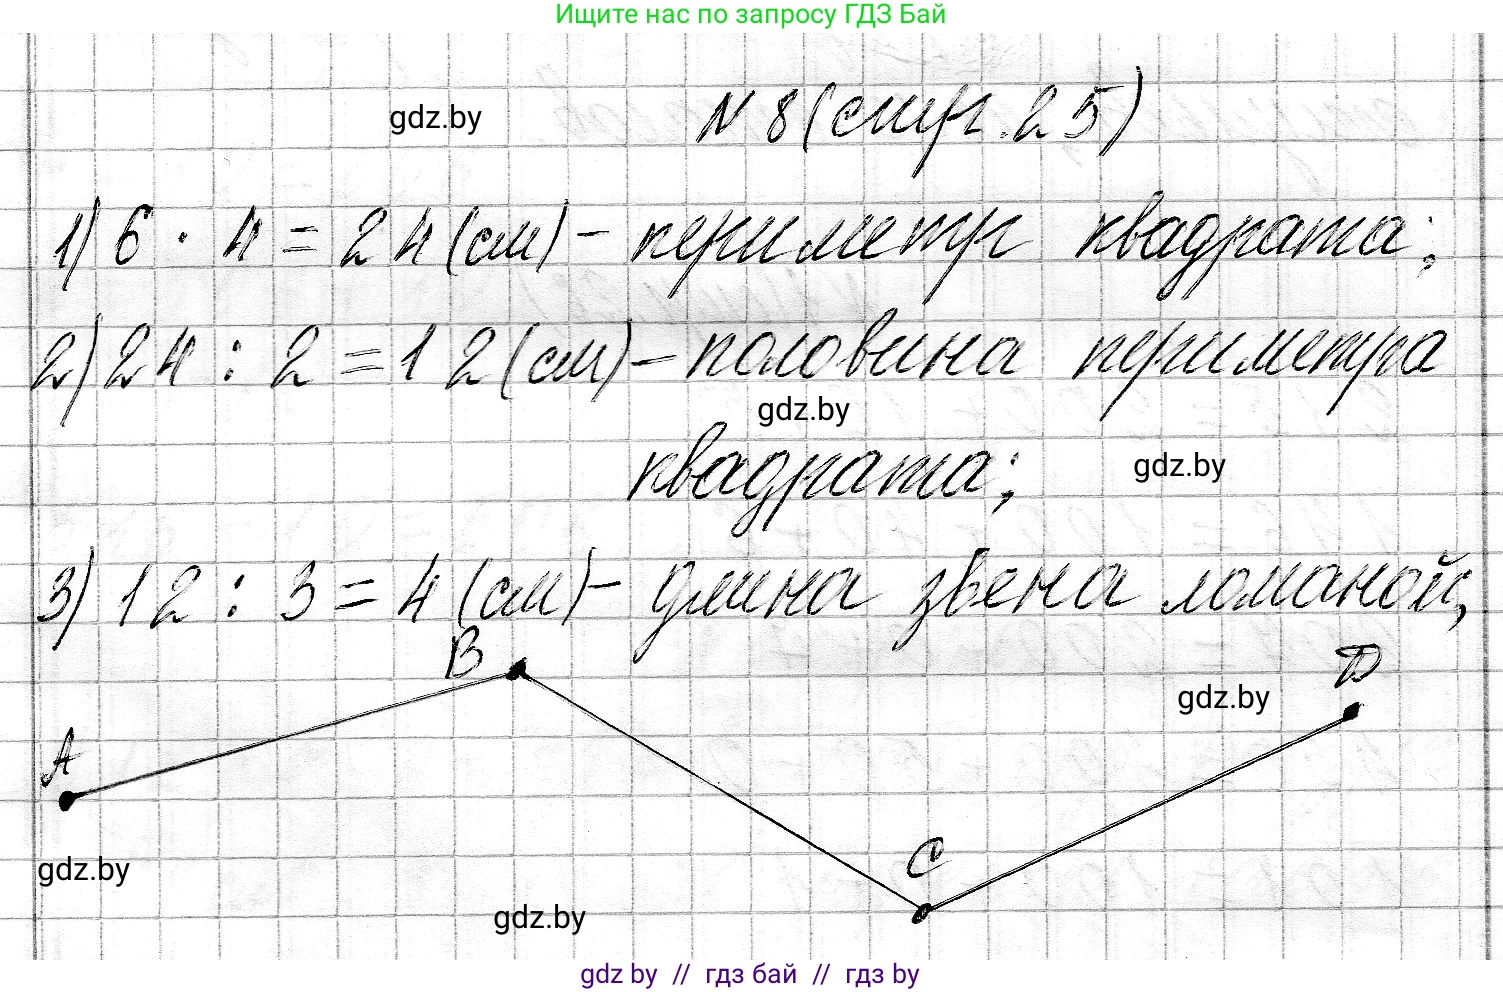 Ищите нас по запросу ГДЗ Бай
gdz.by
N 8 (стр. 25)
1) 6 · 4 = 24 (см) - периметр квадрата;
2) 24 : 2 = 12 (см) - половина периметра
gdz.by
квадрата;
gdz.by
3) 12 : 3 = 4 (см) - длина звена ломаной;
B
D
gdz.by
A
C
gdz.by
gdz.by
gdz by // гдз бай // гдз by